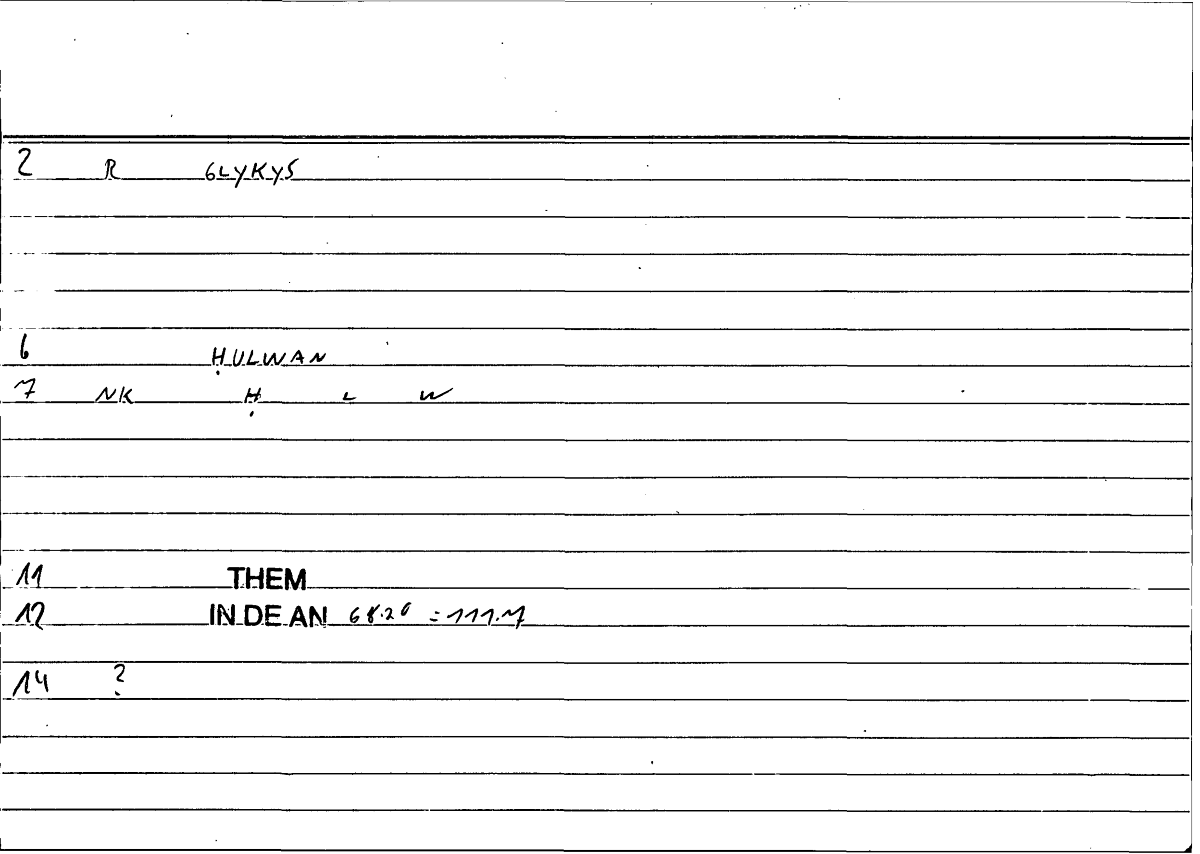 2 R GLYKYS
6 ḤULWAN
7 NK Ḥ L W
11 THEM
12 IN DE AN 68.20 = 111.7
14 ?